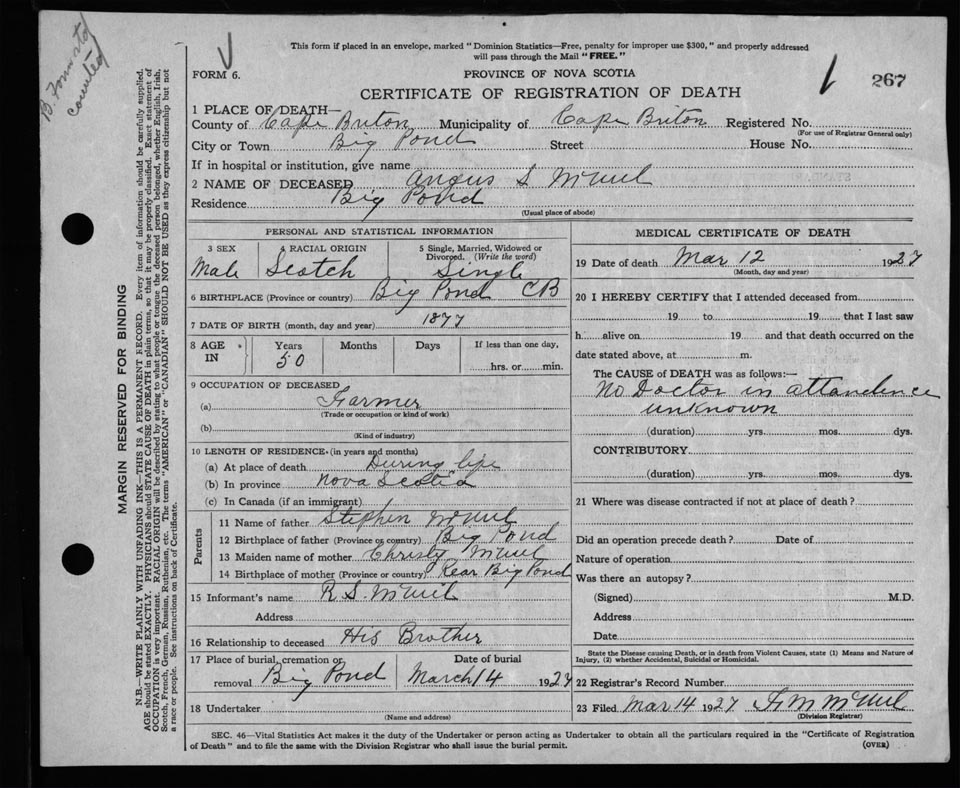 B. Formsto
counted
This form if placed in an envelope, marked "Dominion Statistics—Free, penalty for improper use $300," and properly addressed
will pass through the Mail "FREE."
FORM 6.
PROVINCE OF NOVA SCOTIA
267
CERTIFICATE OF REGISTRATION OF DEATH
1 PLACE OF DEATH—
County of Cape Briton Municipality of Cape Briton Registered No.
(For use of Registrar General only)
City or Town Big Pond Street House No.
If in hospital or institution, give name
2 NAME OF DECEASED Angus S McNeil
Residence Big Pond
(Usual place of abode)
PERSONAL AND STATISTICAL INFORMATION
3 SEX 4 RACIAL ORIGIN 5 Single, Married, Widowed or Divorced. (Write the word)
Male Scotch Single
6 BIRTHPLACE (Province or country) Big Pond CB
7 DATE OF BIRTH (month, day and year) 1877
8 AGE IN Years Months Days If less than one day,
50 hrs. or min.
9 OCCUPATION OF DECEASED
(a) Farmer
(Trade or occupation or kind of work)
(b)
(Kind of industry)
10 LENGTH OF RESIDENCE (in years and months)
(a) At place of death During life
(b) In province Nova Scotia
(c) In Canada (if an immigrant)
Parents
11 Name of father Stephen McNeil
12 Birthplace of father (Province or country) Big Pond
13 Maiden name of mother Christy McNeil
14 Birthplace of mother (Province or country) Rear Big Pond
15 Informant's name R. S. McNeil
Address
16 Relationship to deceased His Brother
17 Place of burial, cremation or removal Big Pond Date of burial March 14 1927
18 Undertaker
(Name and address)
MEDICAL CERTIFICATE OF DEATH
19 Date of death Mar 12 1927
(Month, day and year)
20 I HEREBY CERTIFY that I attended deceased from
19 to 19 that I last saw
h alive on 19 and that death occurred on the
date stated above, at m.
The CAUSE of DEATH was as follows:—
No Doctor in attendence
unknown
(duration) yrs. mos. dys.
CONTRIBUTORY
(duration) yrs. mos. dys.
21 Where was disease contracted if not at place of death?
Did an operation precede death? Date of
Nature of operation
Was there an autopsy?
(Signed) M.D.
Address
Date
State the Disease causing Death, or in death from Violent Causes, state (1) Means and Nature of
Injury, (2) whether Accidental, Suicidal or Homicidal.
22 Registrar's Record Number
23 Filed Mar 14 1927 McNeil
(Division Registrar)
SEC. 46—Vital Statistics Act makes it the duty of the Undertaker or person acting as Undertaker to obtain all the particulars required in the "Certificate of Registration
of Death" and to file the same with the Division Registrar who shall issue the burial permit.
(OVER)
MARGIN RESERVED FOR BINDING
N.B.—WRITE PLAINLY WITH UNFADING INK—THIS IS A PERMANENT RECORD. Every item of information should be carefully supplied.
AGE should be stated EXACTLY. PHYSICIANS should STATE CAUSE OF DEATH in plain terms, so that it may be properly classified. Exact statement of
OCCUPATION is very important. RACIAL ORIGIN will be described by stating to what people or tongue the deceased person belonged, whether English, Irish,
Scotch, French, German, Russian, Ruthenian, etc. The terms "AMERICAN" or "CANADIAN" SHOULD NOT BE USED as they express citizenship but not
a race or people. See instructions on back of Certificate.